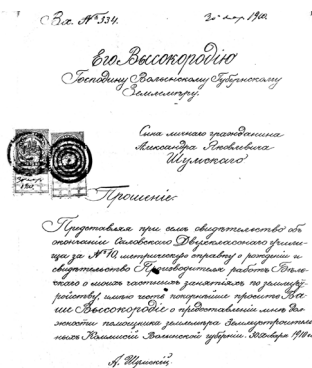 Вх. № 334.
Его Высокородію
Господину Волынскому Губернскому
Землемѣру.
Сына личнаго гражданина
Александра Яковлевича
Шумскаго
Прошеніе.
Представляя при семъ свидѣтельство объ
окончаніи Двухкласснаго учили-
ща за № 70, метрическую справку о рожденіи и
свидѣтельство Производителя работъ
о моихъ частныхъ занятіяхъ по землеуст-
ройству, имѣю честь покорнѣйше просить Ва-
ше Высокородіе о предоставленіи мнѣ дол-
жности помощника землемѣра Землеустроитель-
ныхъ Комиссій Волынской губерніи. 30 Января 1910 г.
А. Шумскій.